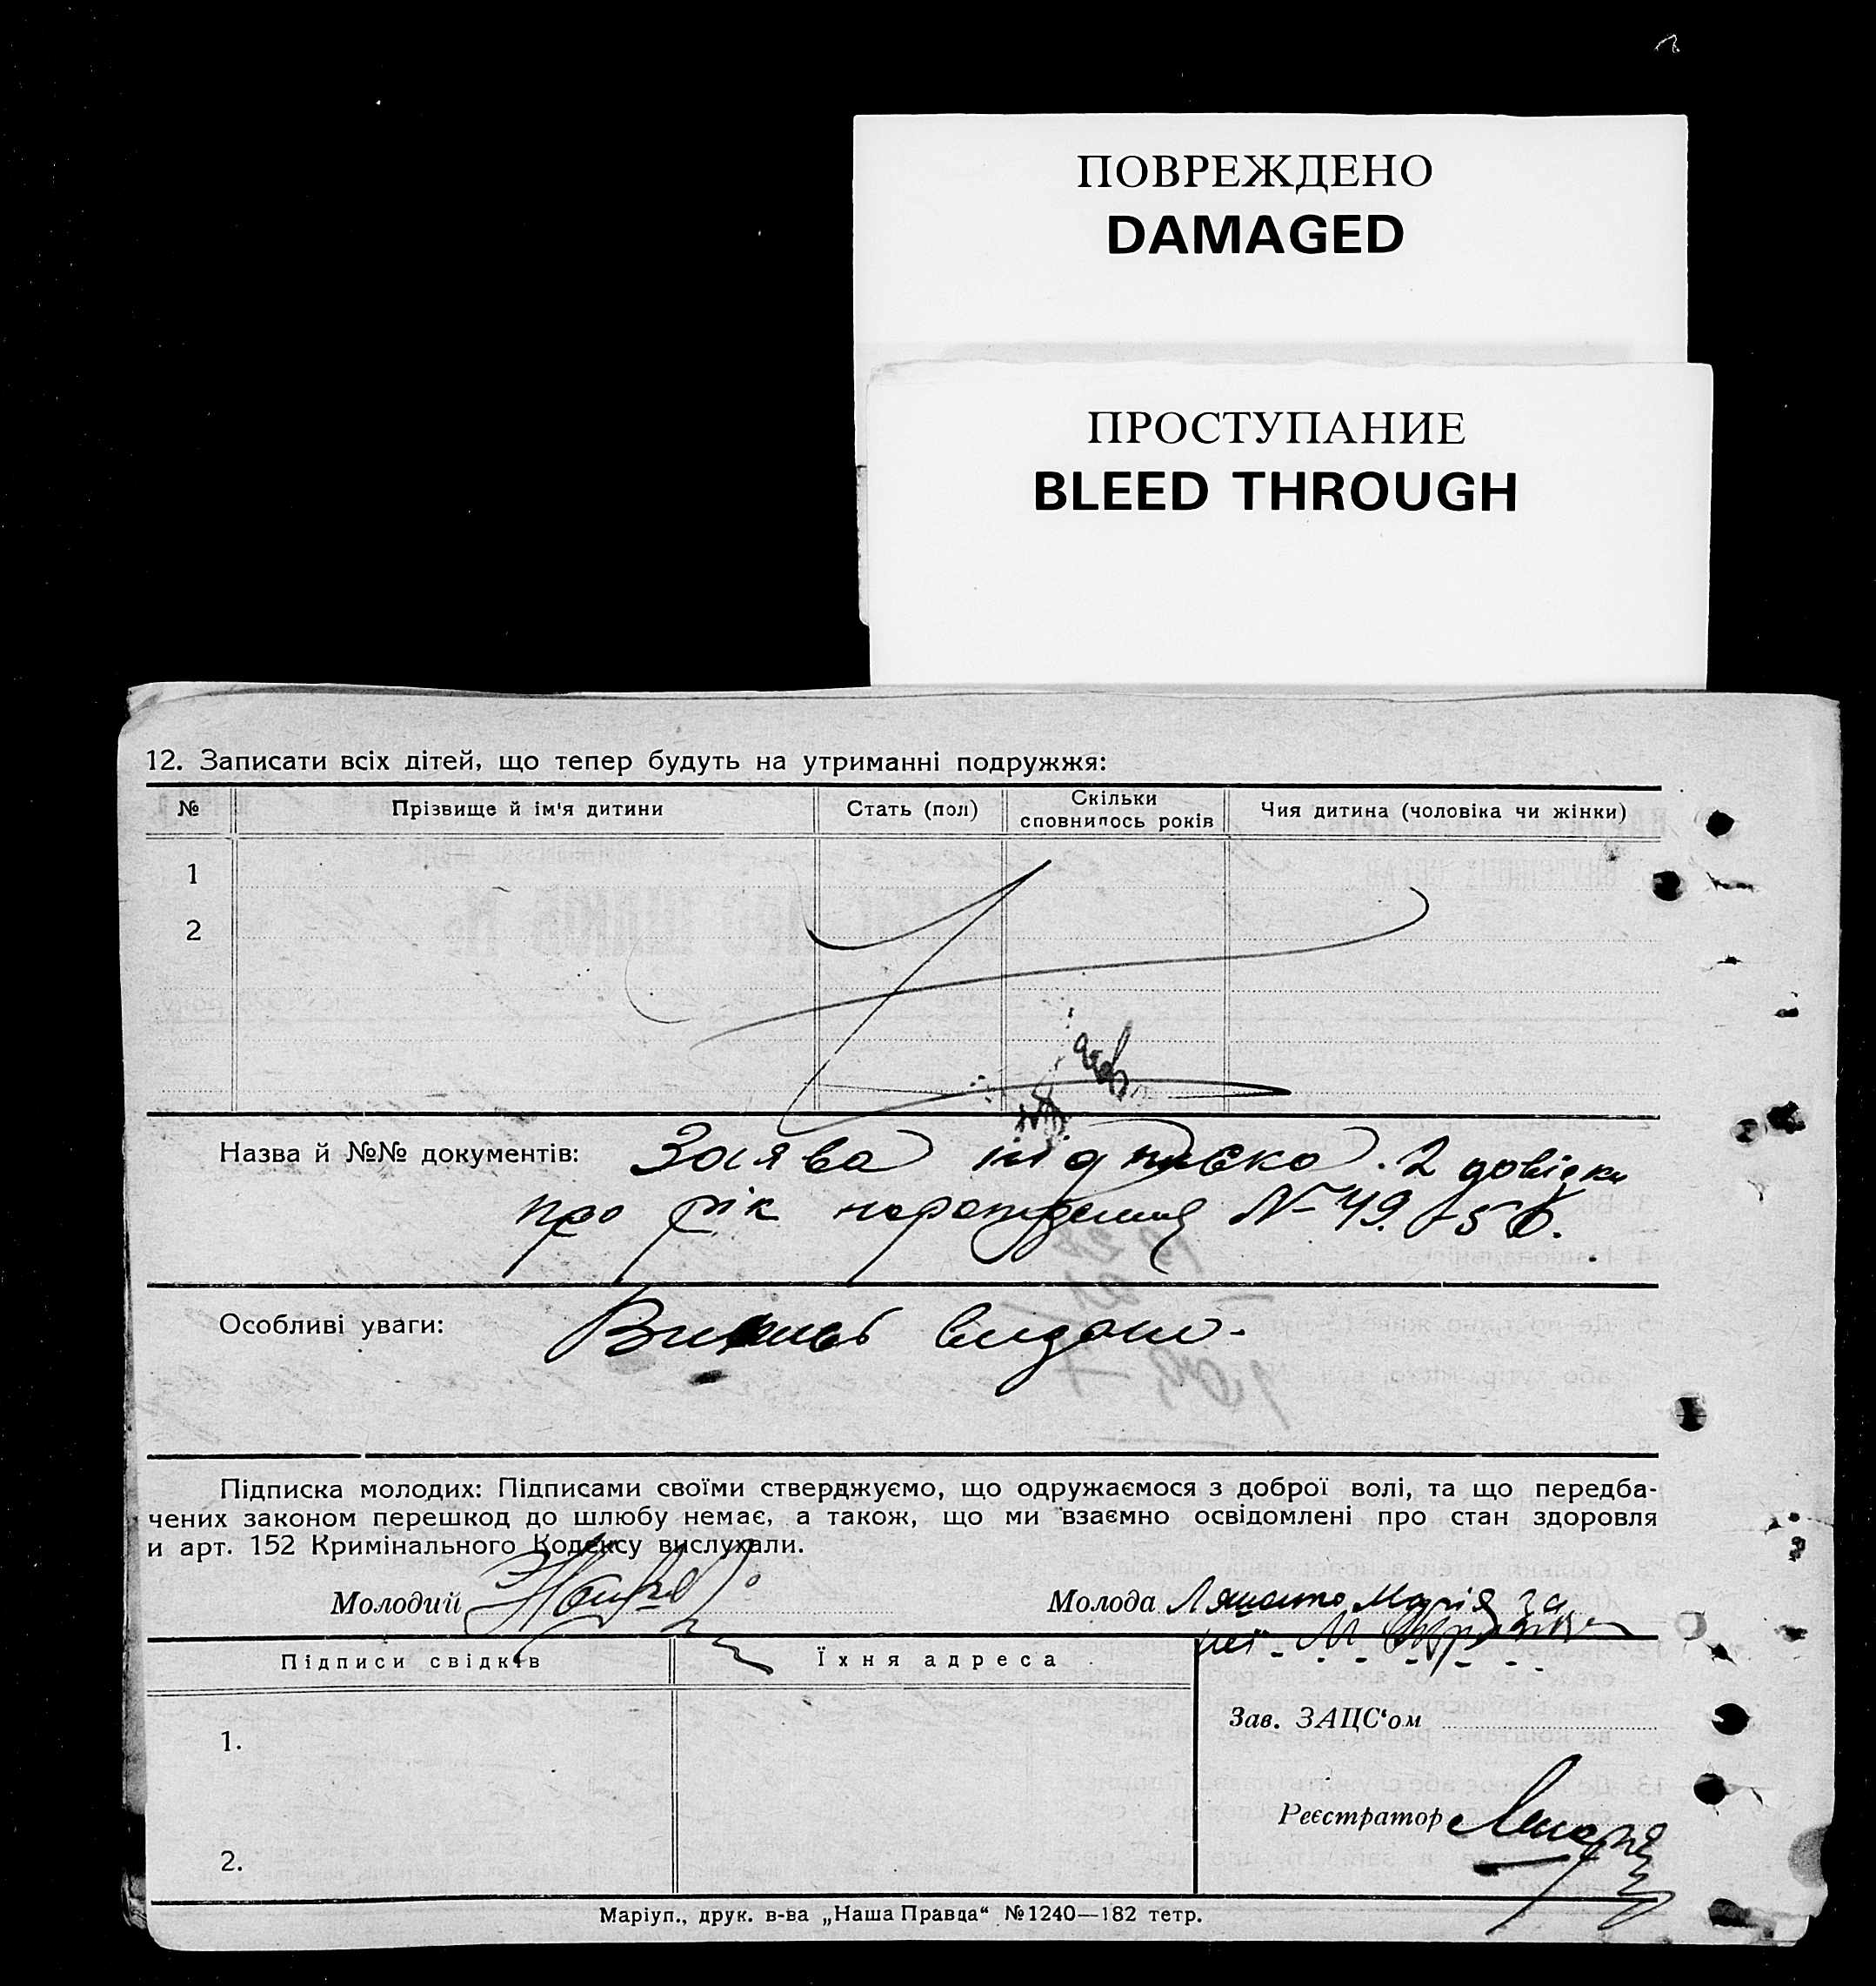 ПОВРЕЖДЕНО
DAMAGED
ПРОСТУПАНИЕ
BLEED THROUGH
12. Записати всіх дітей, що тепер будуть на утриманні подружжя:
№ Прізвище й ім'я дитини Стать (пол) Скільки сповнилось років Чия дитина (чоловіка чи жінки)
1
2
Назва й №№ документів: Заява підписка. 2 довідки
про рік народження N-49.
Особливі уваги: видано.
Підписка молодих: Підписами своїми стверджуємо, що одружаємося з доброї волі, та що передба-
чених законом перешкод до шлюбу немає, а також, що ми взаємно освідомлені про стан здоровля
и арт. 152 Кримінального Кодексу вислухали.
Молодий Молода Ляшенко Марія за
неї М
Підписи свідків Їхня адреса
Зав. ЗАЦС'ом
1.
Реєстратор
2.
Маріуп., друк. в-ва „Наша Правда“ №1240—182 тетр.